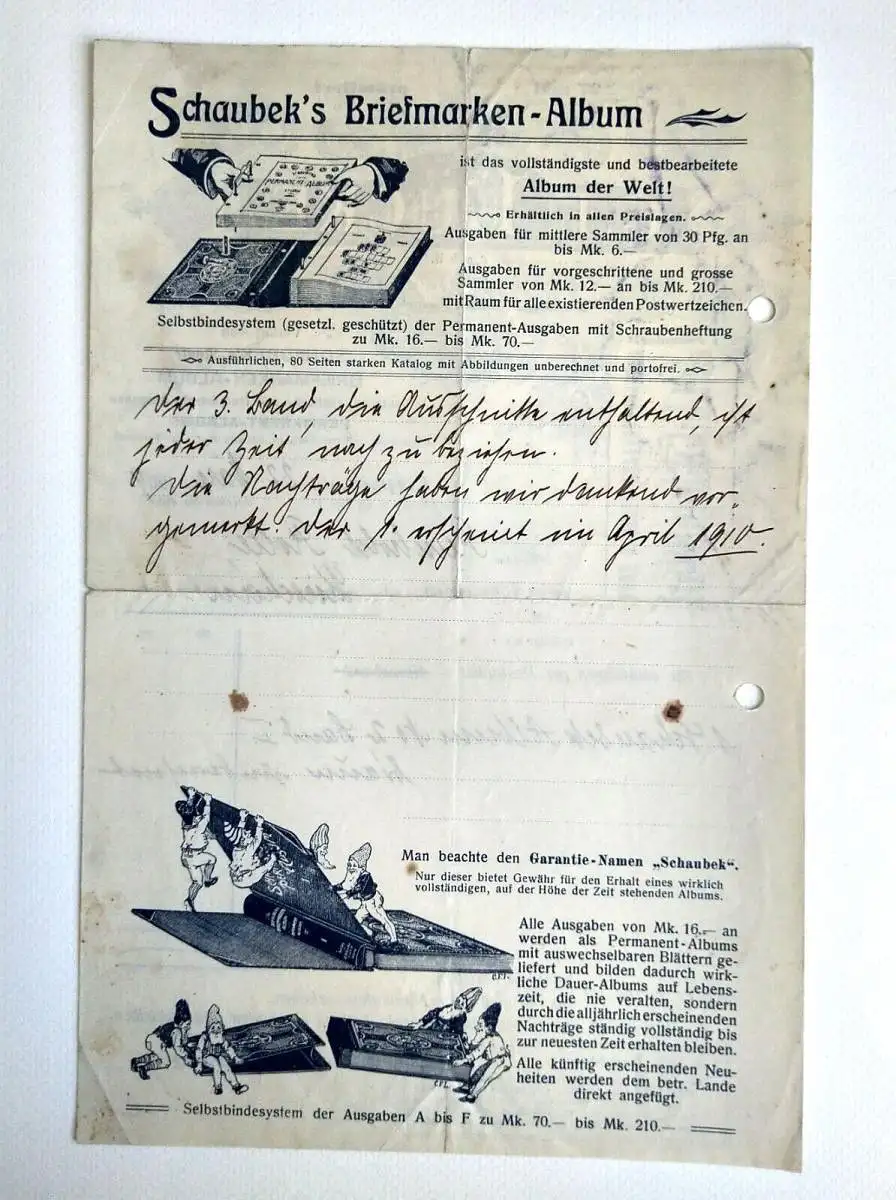 Schaubek's Briefmarken-Album
PERMANENT-ALBUM
ist das vollständigste und bestbearbeitete
Album der Welt!
Erhältlich in allen Preislagen.
Ausgaben für mittlere Sammler von 30 Pfg. an
bis Mk. 6.—
Ausgaben für vorgeschrittene und grosse
Sammler von Mk. 12.— an bis Mk. 210.—
mit Raum für alle existierenden Postwertzeichen.
Selbstbindesystem (gesetzl. geschützt) der Permanent-Ausgaben mit Schraubenheftung
zu Mk. 16.— bis Mk. 70.—
Ausführlichen, 80 Seiten starken Katalog mit Abbildungen unberechnet und portofrei.
Der 3. Band, die Ausschnitte enthaltend, ist
jeder Zeit nach zu beziehen.
Die Nachträge haben wir dankend vor-
gemerkt. Der 1. erscheint im April 1910.
Man beachte den Garantie-Namen „Schaubek“.
Nur dieser bietet Gewähr für den Erhalt eines wirklich
vollständigen, auf der Höhe der Zeit stehenden Albums.
Alle Ausgaben von Mk. 16.— an
werden als Permanent-Albums
mit auswechselbaren Blättern ge-
liefert und bilden dadurch wirk-
liche Dauer-Albums auf Lebens-
zeit, die nie veralten, sondern
durch die alljährlich erscheinenden
Nachträge ständig vollständig bis
zur neuesten Zeit erhalten bleiben.
Alle künftig erscheinenden Neu-
heiten werden dem betr. Lande
direkt angefügt.
Selbstbindesystem der Ausgaben A bis F zu Mk. 70.— bis Mk. 210.—